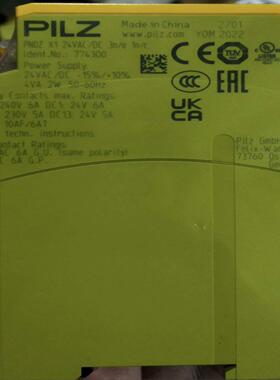 PILZ
Made in China 2701
www.pilz.com YOM 2022
PNOZ X1 24VAC/DC 3n/o 1n/c
Ident.No.: 774300
Power Supply:
24VAC/DC -15%/+10%
4VA 2W 50-60Hz
Contacts max. Ratings:
240V 6A DC1: 24V 6A
230V 5A DC13: 24V 5A
10AF/6AT
techn. instructions
ontact Ratings:
AC 6A G.U. (same polarity)
6A G.P.
CE
CCC
EAC
TÜV
UL
UK
CA
Pilz GmbH
Felix-Wa
73760 Os
Ge